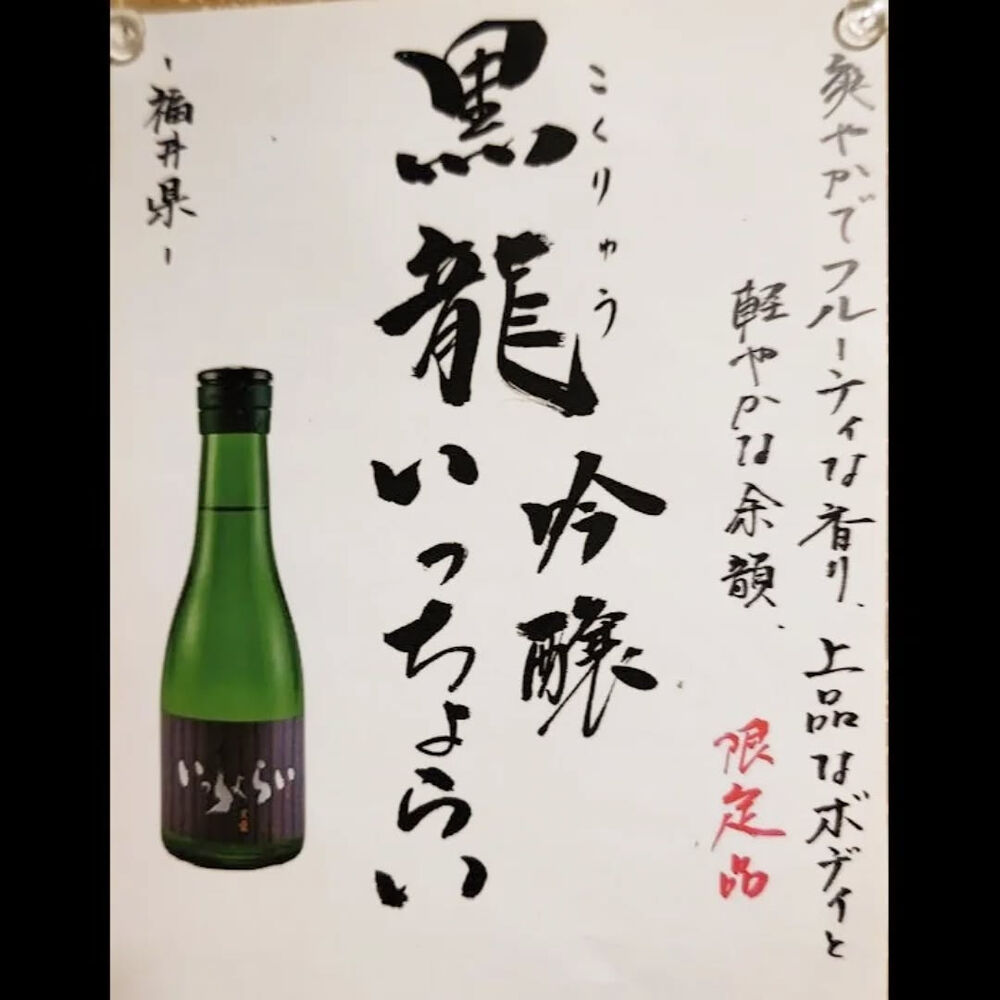 爽やかでフルーティな香り、上品なボディと
軽やかな余韻、
限定品
こくりゅう
黒龍
吟醸
いっちょらい
-福井県-
いっちょらい
黒龍